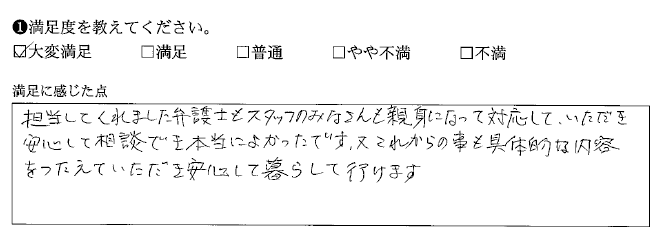 ❶満足度を教えてください。
☑大変満足 □満足 □普通 □やや不満 □不満
満足に感じた点
担当してくれました弁護士もスタッフのみなさんも親身になって対応して、いただき
安心して相談でき本当によかったです。又これからの事も具体的な内容
をつたえていただき安心して暮らして行けます